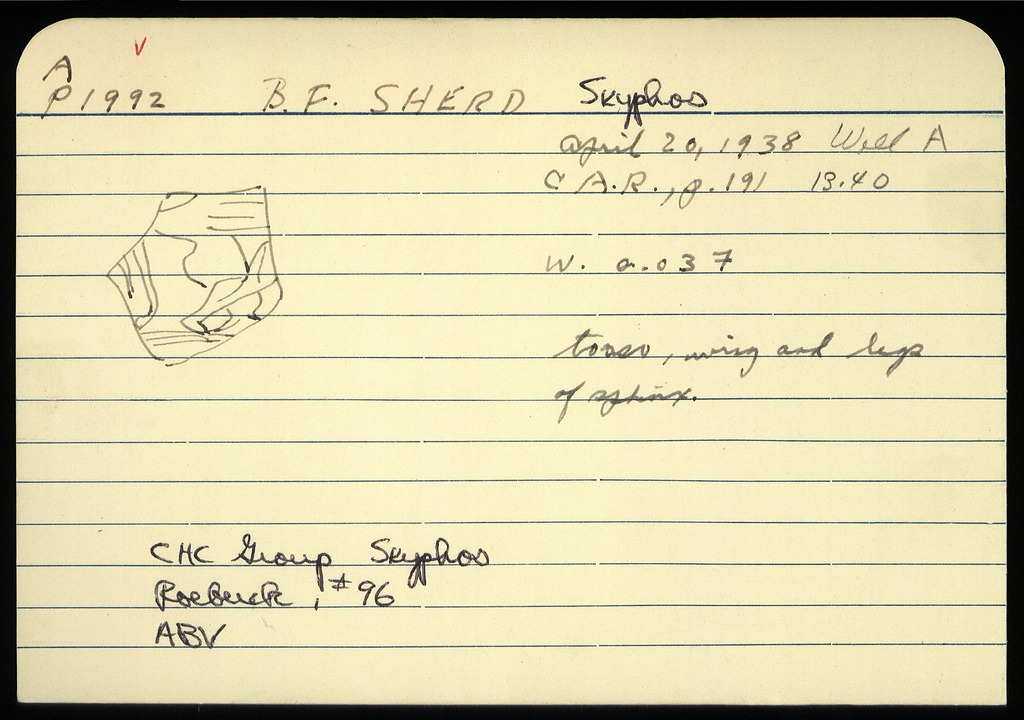 A
V
P 1992 B.F. SHERD Skyphos
april 20, 1938 Well A
C A.R., p. 191 13.40
W. a. 0 3 7
torso, wing and legs
of sphinx.
CHC Group Skyphos
Roebuck, #96
ABV